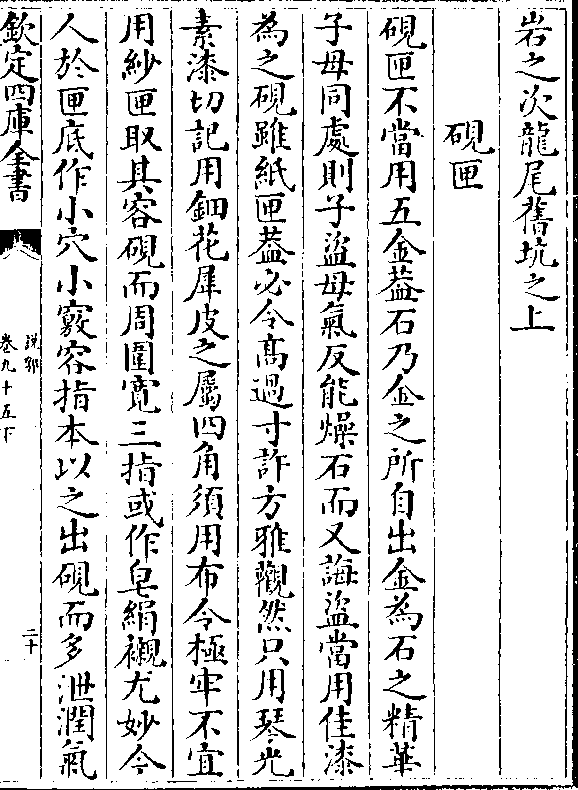 岩之次龍尾舊坑之上
硯匣
硯匣不當用五金葢石乃金之所自出金為石之精華
子母同處則子盜母氣反能燥石而又誨盜當用佳漆
為之硯雖紙匣葢必令高過寸許方雅觀然只用琴光
素漆切記用鈿花犀皮之屬四角須用布令極牢不宜
用紗匣取其容硯而周圍寛三指或作皂絹襯尤妙今
人於匣底作小穴小竅容指本以之出硯而多泄潤氣
欽定四庫全書
說郛
卷九十五下
二十